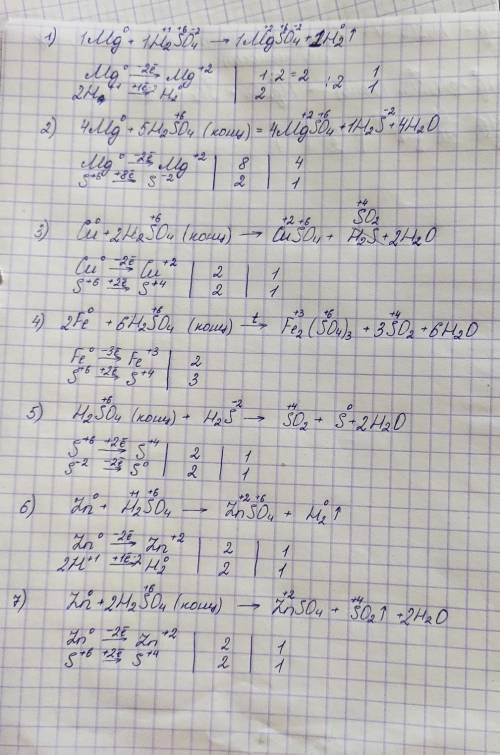 1) 1Mg⁰ + 1H₂⁺¹S⁺⁶O₄⁻² → 1Mg⁺²S⁺⁶O₄⁻² + 1H₂⁰↑
Mg⁰ −2ē→ Mg⁺² | 1·2=2 :2 1
2H⁺¹ +1ē·2→ H₂⁰ | 2 1
2) 4Mg⁰ + 5H₂S⁺⁶O₄ (конц) = 4Mg⁺²S⁺⁶O₄ + 1H₂S⁻² + 4H₂O
Mg⁰ −2ē→ Mg⁺² | 8 | 4
S⁺⁶ +8ē→ S⁻² | 2 | 1
S⁺⁴O₂
3) Cu⁰ + 2H₂S⁺⁶O₄ (конц) → Cu⁺²S⁺⁶O₄ + H₂S + 2H₂O
Cu⁰ −2ē→ Cu⁺² | 2 | 1
S⁺⁶ +2ē→ S⁺⁴ | 2 | 1
4) 2Fe⁰ + 6H₂S⁺⁶O₄ (конц) t→ Fe₂⁺³(S⁺⁶O₄)₃ + 3S⁺⁴O₂ + 6H₂O
Fe⁰ −3ē→ Fe⁺³ | 2
S⁺⁶ +2ē→ S⁺⁴ | 3
5) H₂S⁺⁶O₄ (конц) + H₂S⁻² → S⁺⁴O₂ + S⁰ + 2H₂O
S⁺⁶ +2ē→ S⁺⁴ | 2 | 1
S⁻² −2ē→ S⁰ | 2 | 1
6) Zn⁰ + H₂⁺¹S⁺⁶O₄ → Zn⁺²S⁺⁶O₄ + H₂⁰↑
Zn⁰ −2ē→ Zn⁺² | 2 | 1
2H⁺¹ +1ē·2→ H₂⁰ | 2 | 1
7) Zn⁰ + 2H₂S⁺⁶O₄ (конц) → Zn⁺²SO₄ + S⁺⁴O₂↑ + 2H₂O
Zn⁰ −2ē→ Zn⁺² | 2 | 1
S⁺⁶ +2ē→ S⁺⁴ | 2 | 1